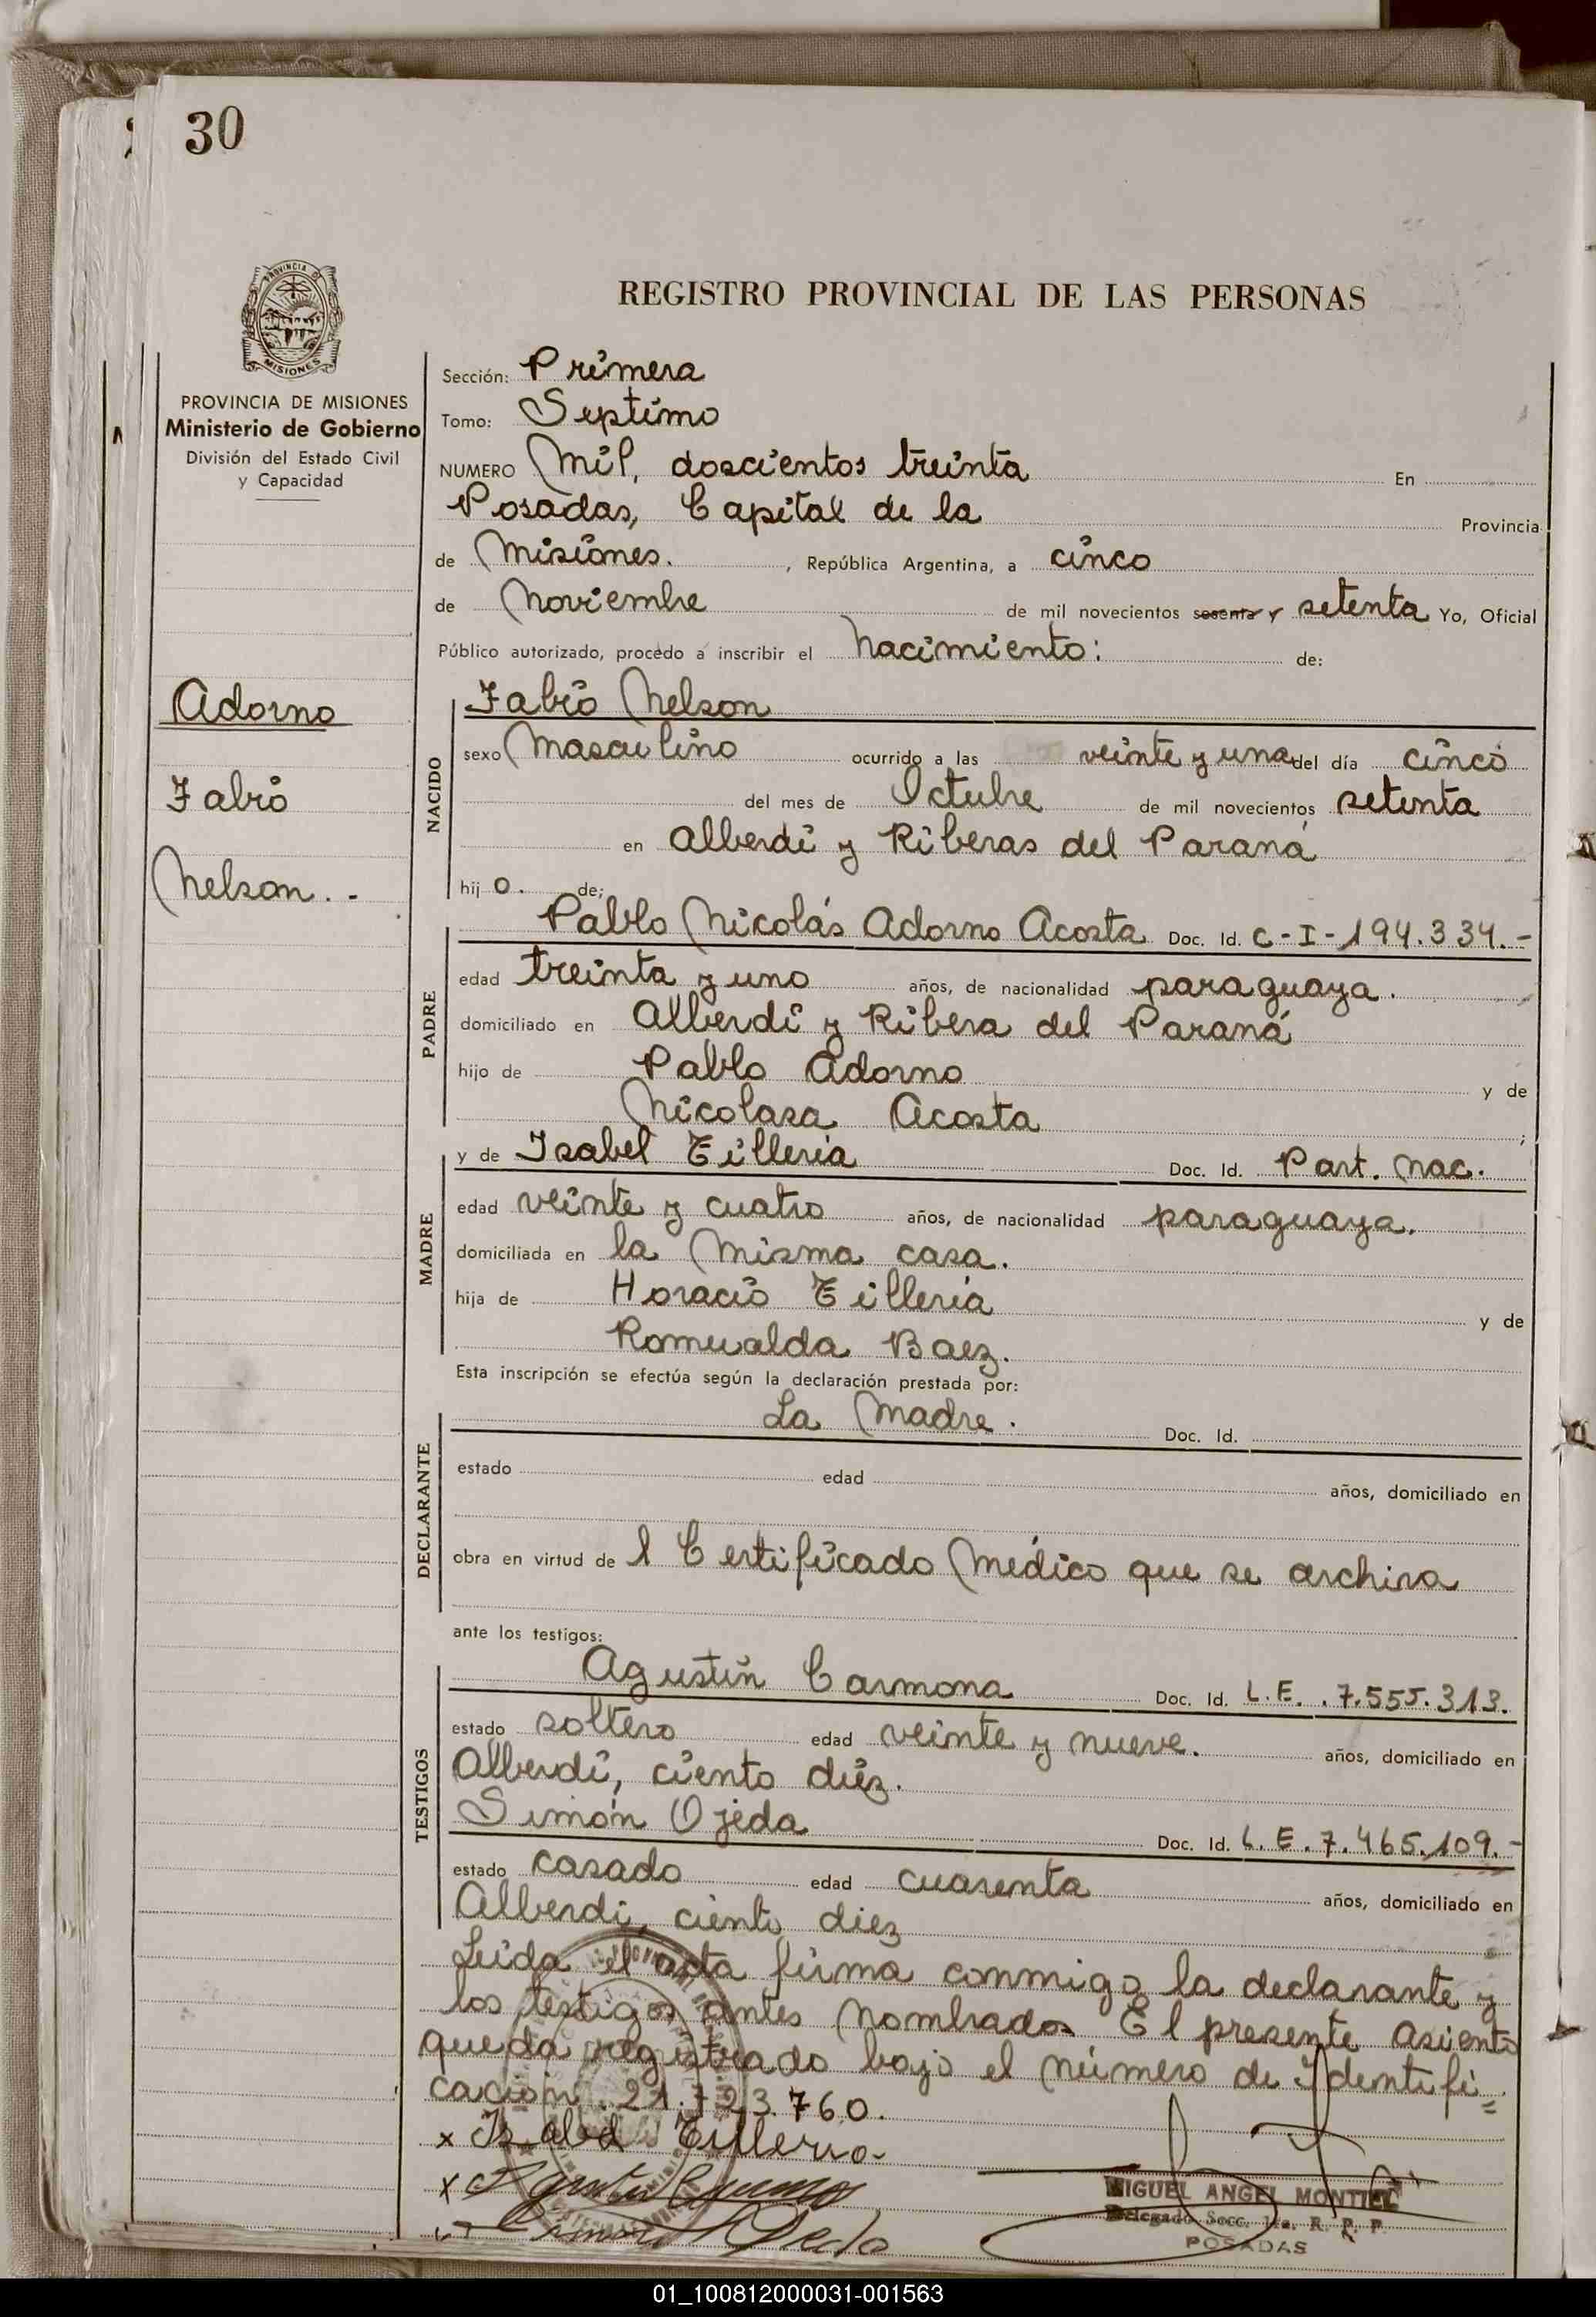 30
PROVINCIA D
MISIONES
PROVINCIA DE MISIONES
Ministerio de Gobierno
División del Estado Civil
y Capacidad
Adorno
Fabio
Nelson.-
REGISTRO PROVINCIAL DE LAS PERSONAS
Sección: Primera
Tomo: Septimo
NUMERO Mil, doscientos treinta En
Posadas, Capital de la Provincia
de Misiones. , República Argentina, a cinco
de Noviembre de mil novecientos sesenta y setenta Yo, Oficial
Público autorizado, procedo a inscribir el Nacimiento: de:
NACIDO
Fabio Nelson
sexo Masculino ocurrido a las veinte y una del día cinco
del mes de Octubre de mil novecientos setenta
en Alberdi y Riberas del Paraná
hij o. de:
PADRE
Pablo Nicolás Adorno Acosta Doc. Id. C-I-194.334.-
edad treinta y uno años, de nacionalidad paraguaya.
domiciliado en Alberdi y Ribera del Paraná
hijo de Pablo Adorno y de
Nicolasa Acosta ;
MADRE
y de Isabel Tilleria Doc. Id. Part. Nac.
edad veinte y cuatro años, de nacionalidad paraguaya.
domiciliada en la misma casa.
hija de Horacio Tilleria y de
Romualda Baez.
Esta inscripción se efectúa según la declaración prestada por:
DECLARANTE
La Madre. Doc. Id.
estado edad años, domiciliado en
obra en virtud de l Certificado Médico que se archiva
ante los testigos:
TESTIGOS
Agustin Carmona Doc. Id. L.E. .7.555.313.
estado soltero edad veinte y nueve. años, domiciliado en
Alberdi, ciento diez.
Simón Ojeda Doc. Id. L.E.7.465.109.-
estado casado edad cuarenta años, domiciliado en
Alberdi, ciento diez
Leida el acta firma conmigo la declarante y
los testigos antes nombrados El presente asiento
queda registrado bajo el número de Identifi=
cación .21.723.760.
x Isabel Tilleria
x Agustin Carmona
Simon Ojeda
MIGUEL ANGEL MONTIEL
Delegado Secc. 1ra. R. P. P.
POSADAS
01_100812000031-001563